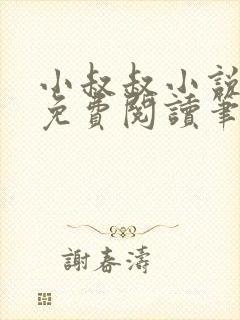 小叔叔小說
免費閱讀筆
謝春濤